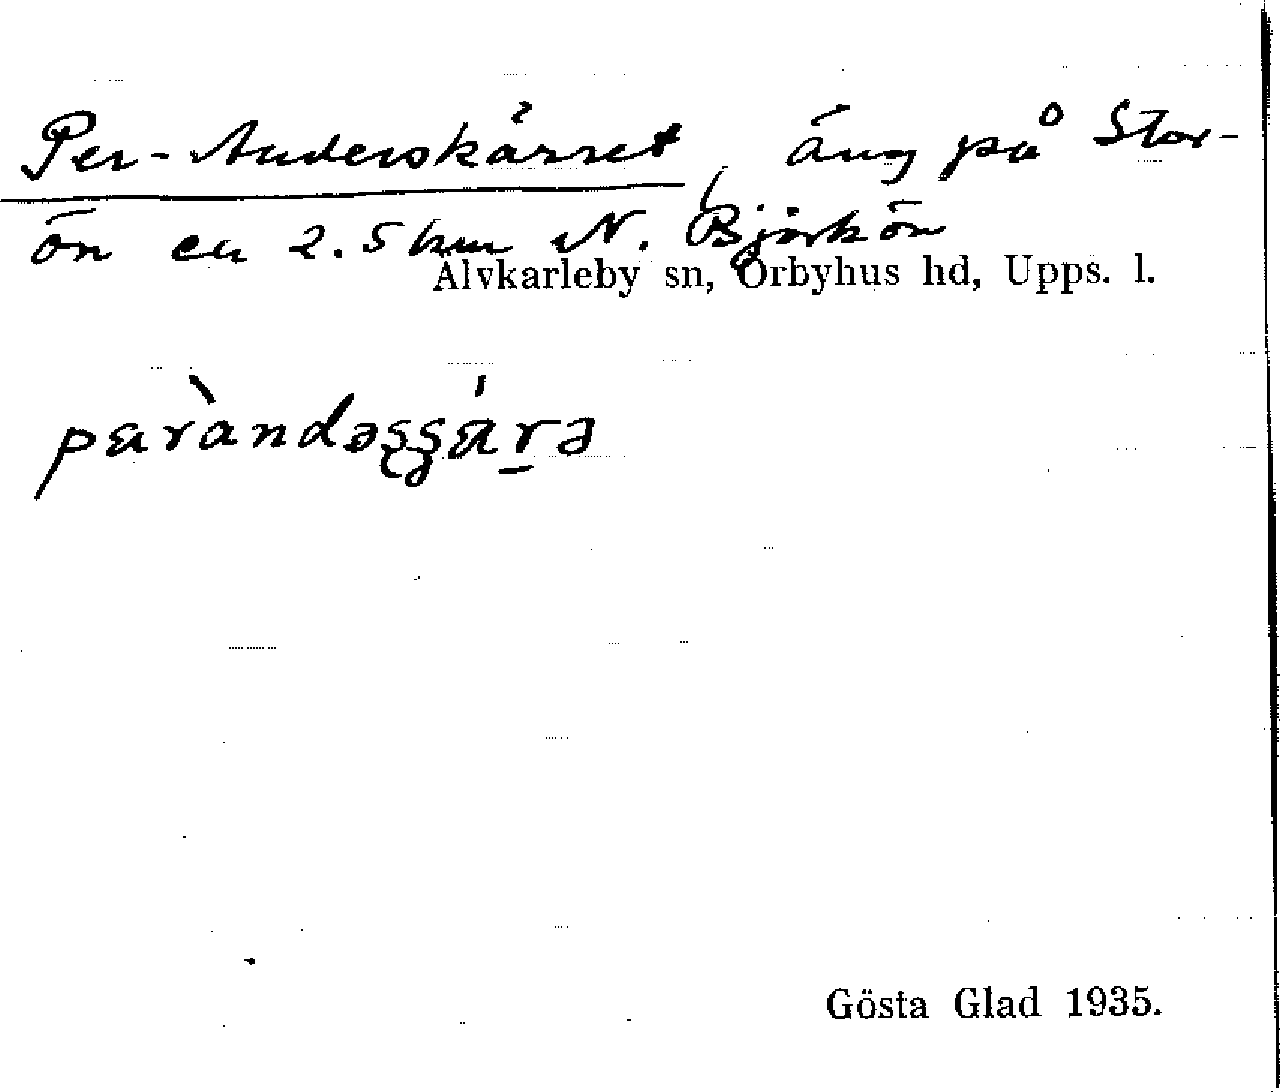 Per-Anderskärret, äng på Stor-
ön ca 2.5 km N. Björkön
Älvkarleby sn, Örbyhus hd, Upps. l.
Gösta Glad 1935.